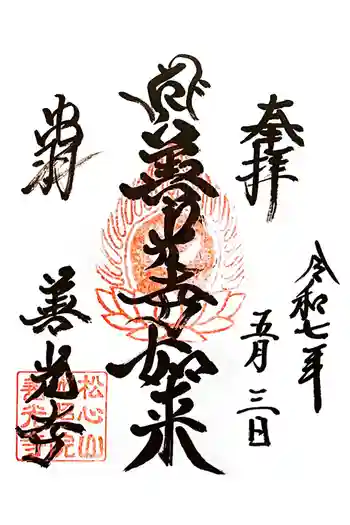 奉拝
令和七年
五月三日
善光寺如来
出羽
善光寺
松心山
善光寺